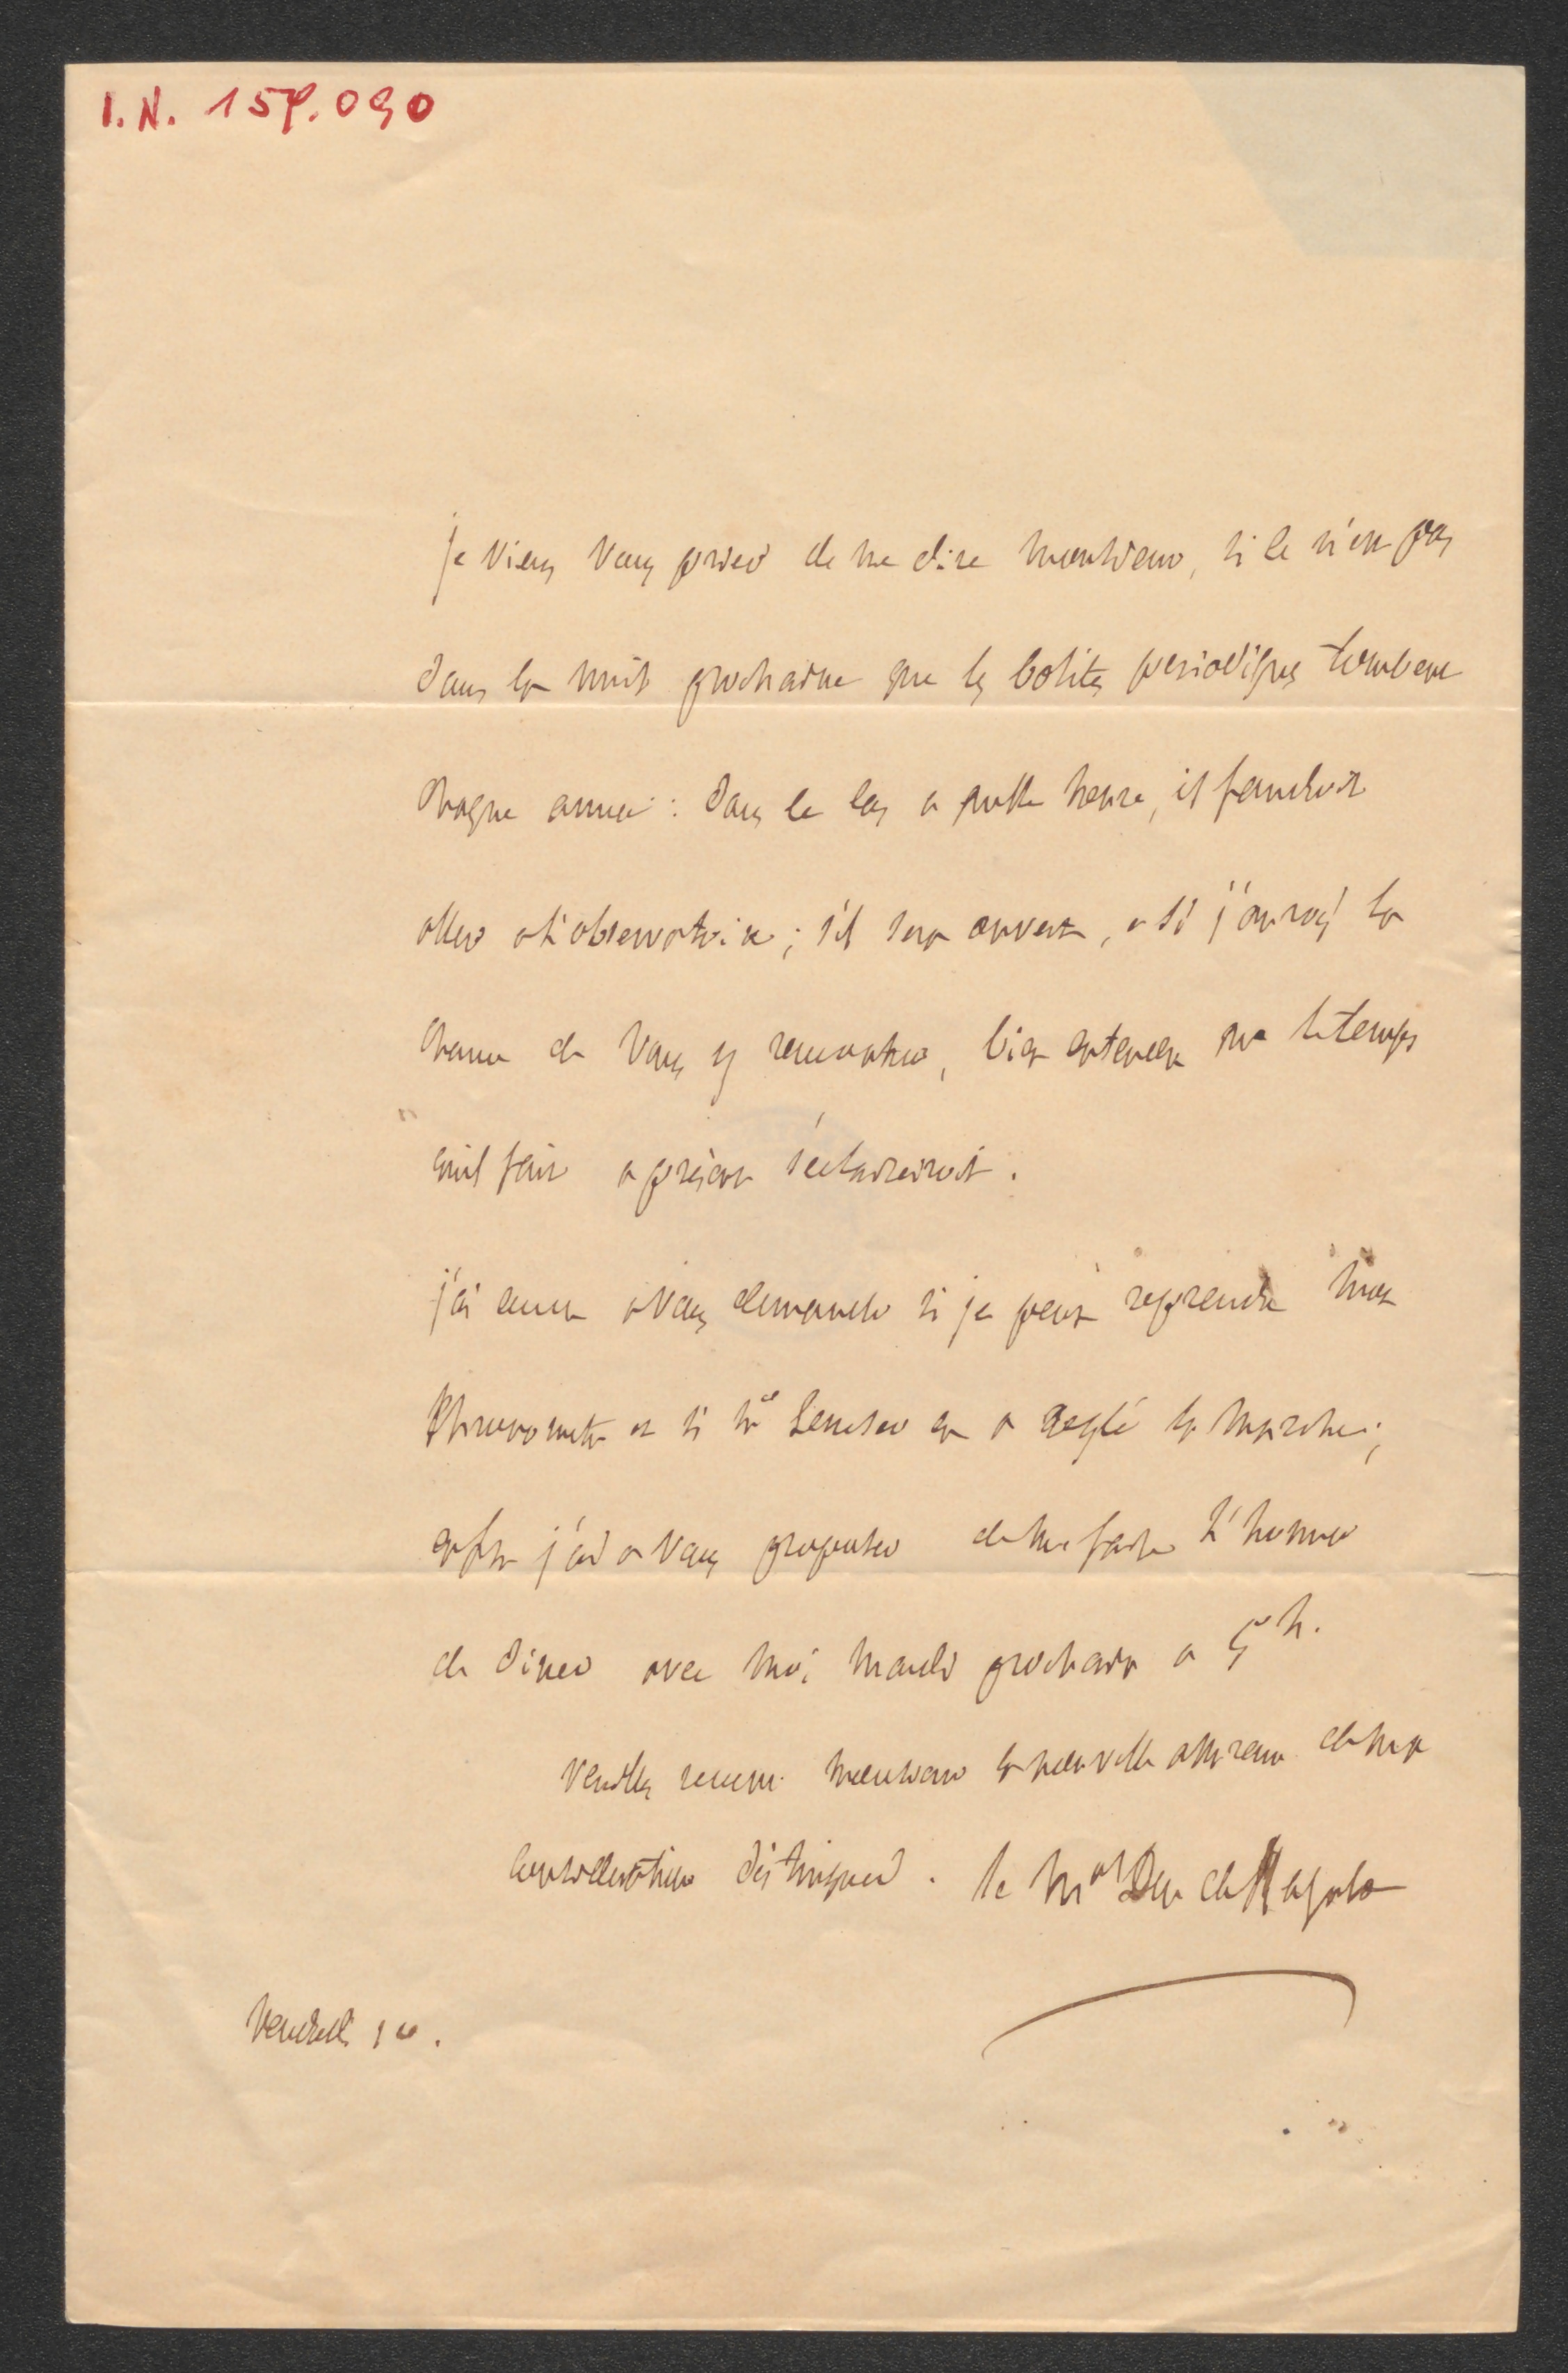 I.N. 157.090
je viens vous prier de me dire monsieur, si ce n'est pas
dans la nuit prochaine que les bolites periodiques tombent
chaque année : dans ce cas a quelle heure, il faudroit
aller a l'observatoire ; s'il sera ouvert, et si j'aurois la
chance de vous y rencontrer, bien entendu que le temps
qu'il fait a présent s'eclairciroit.
j'ai encor a vous demander si je peux reprendre mon
Chronometre et si mr en a reglé la marche ;
enfin j'ai a vous proposer de me faire l'honneur
de diner avec moi mardi prochain a 5 h.
veuillez recevoir monsieur la nouvelle assurance de ma
consideration distinguée. le Mal Duc de Raguse
Vendredi 10.